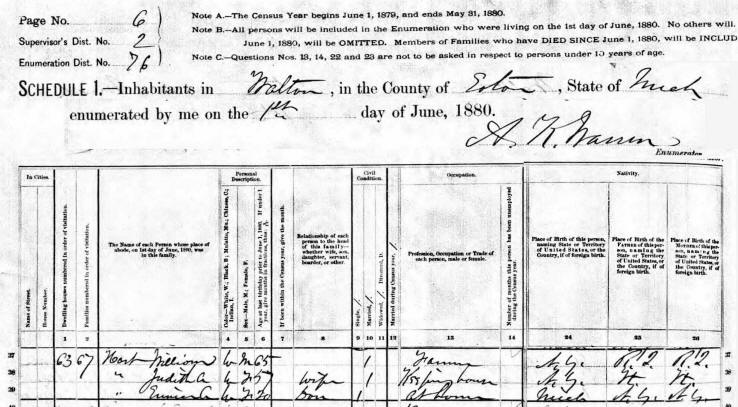 Page No. 6
Supervisor's Dist. No. 2
Enumeration Dist. No. 76
Note A.—The Census Year begins June 1, 1879, and ends May 31, 1880.
Note B.—All persons will be included in the Enumeration who were living on the 1st day of June, 1880. No others will.
June 1, 1880, will be OMITTED. Members of Families who have DIED SINCE June 1, 1880, will be INCLUD
Note C.—Questions Nos. 13, 14, 22 and 23 are not to be asked in respect to persons under 10 years of age.
SCHEDULE 1.—Inhabitants in Walton, in the County of Eaton, State of Mich
enumerated by me on the day of June, 1880.
A. K. Warren
Enumerator
In Cities.
Personal Description.
Civil Condition.
Occupation.
Nativity.
Name of Street.
House Number.
Dwelling houses numbered in order of visitation.
Families numbered in order of visitation.
The Name of each Person whose place of abode, on 1st day of June, 1880, was in this family.
Color—White, W.; Black, B.; Mulatto, Mu.; Chinese, C.; Indian, I.
Sex—Male, M.; Female, F.
Age at last birthday prior to June 1, 1880. If under 1 year, give months in fractions
If born within the Census year, give the month.
Relationship of each person to the head of this family—whether wife, son, daughter, servant, boarder, or other.
Single, /
Married, /
Widowed, / Divorced, D.
Married during Census year, /
Profession, Occupation or Trade of each person, male or female.
Number of months this person has been unemployed during the Census year.
Place of Birth of this person, naming State or Territory of United States, or the Country, if of foreign birth.
Place of Birth of the FATHER of this person, naming the State or Territory of United States, or the Country, if of foreign birth.
Place of Birth of the MOTHER of this person, naming the State or Territory of United States, or the Country, if of foreign birth.
1 2 3 4 5 6 7 8 9 10 11 12 13 14 24 25 26
37 63 67 Hart William W M 65 / Farmer N.Y. R.I. R.I.
38 " Judith A W F 57 wife / Keeping house N.Y.
39 " W 20 Son at home Mich N.Y. N.Y.